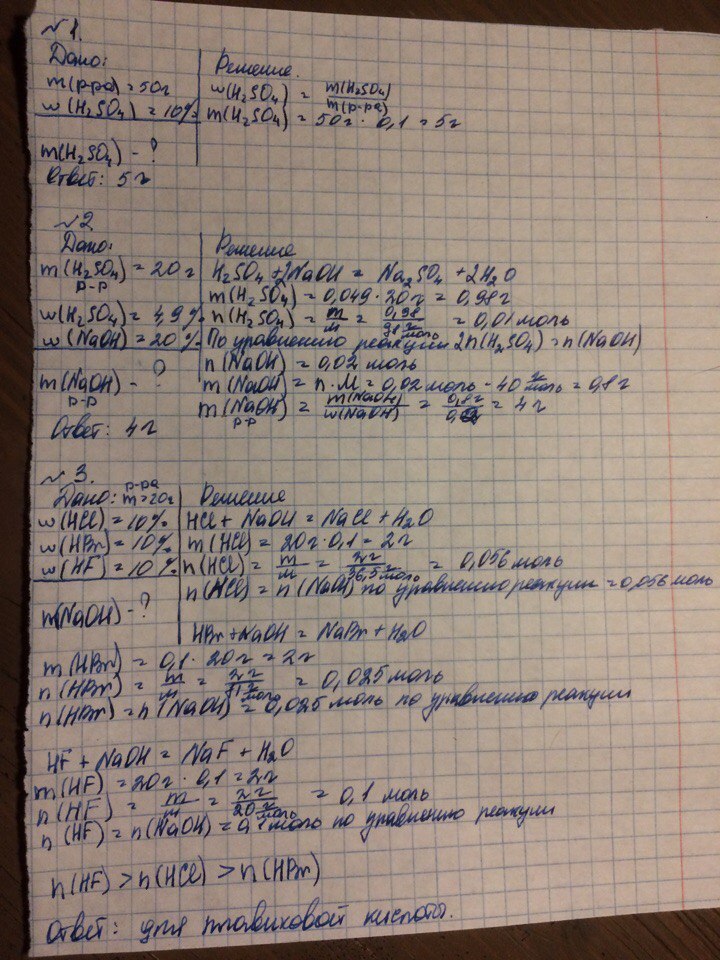 №1.
Дано:
m(р-ра) = 50г
w(H₂SO₄) = 10%
m(H₂SO₄) - ?
Решение.
w(H₂SO₄) = m(H₂SO₄) / m(р-ра)
m(H₂SO₄) = 50г · 0,1 = 5г
Ответ: 5г
№2
Дано:
m(H₂SO₄) = 20г
р-р
w(H₂SO₄) = 4,9%
w(NaOH) = 20%
m(NaOH) - ?
р-р
Решение
H₂SO₄ + 2NaOH = Na₂SO₄ + 2H₂O
m(H₂SO₄) = 0,049 · 20г = 0,98г
n(H₂SO₄) = m/M = 0,98/98 г/моль = 0,01 моль
По уравнению реакции 2n(H₂SO₄) = n(NaOH)
n(NaOH) = 0,02 моль
m(NaOH) = n · M = 0,02 моль · 40 г/моль = 0,8г
m(NaOH) = m(NaOH)/w(NaOH) = 0,8г/0,2 = 4г
р-р
Ответ: 4г
№3.
Дано: m р-ра = 20г
w(HCl) = 10%
w(HBr) = 10%
w(HF) = 10%
m(NaOH) - ?
Решение
HCl + NaOH = NaCl + H₂O
m(HCl) = 20г · 0,1 = 2г
n(HCl) = m/M = 2г/36,5 г/моль = 0,056 моль
n(HCl) = n(NaOH) по уравнению реакции = 0,056 моль
HBr + NaOH = NaBr + H₂O
m(HBr) = 0,1 · 20г = 2г
n(HBr) = m/M = 2г/81 г/моль = 0,025 моль
n(HBr) = n(NaOH) = 0,025 моль по уравнению реакции
HF + NaOH = NaF + H₂O
m(HF) = 20г · 0,1 = 2г
n(HF) = m/M = 2г/20 г/моль = 0,1 моль
n(HF) = n(NaOH) = 0,1 моль по уравнению реакции
n(HF) > n(HCl) > n(HBr)
Ответ: для плавиковой кислоты.